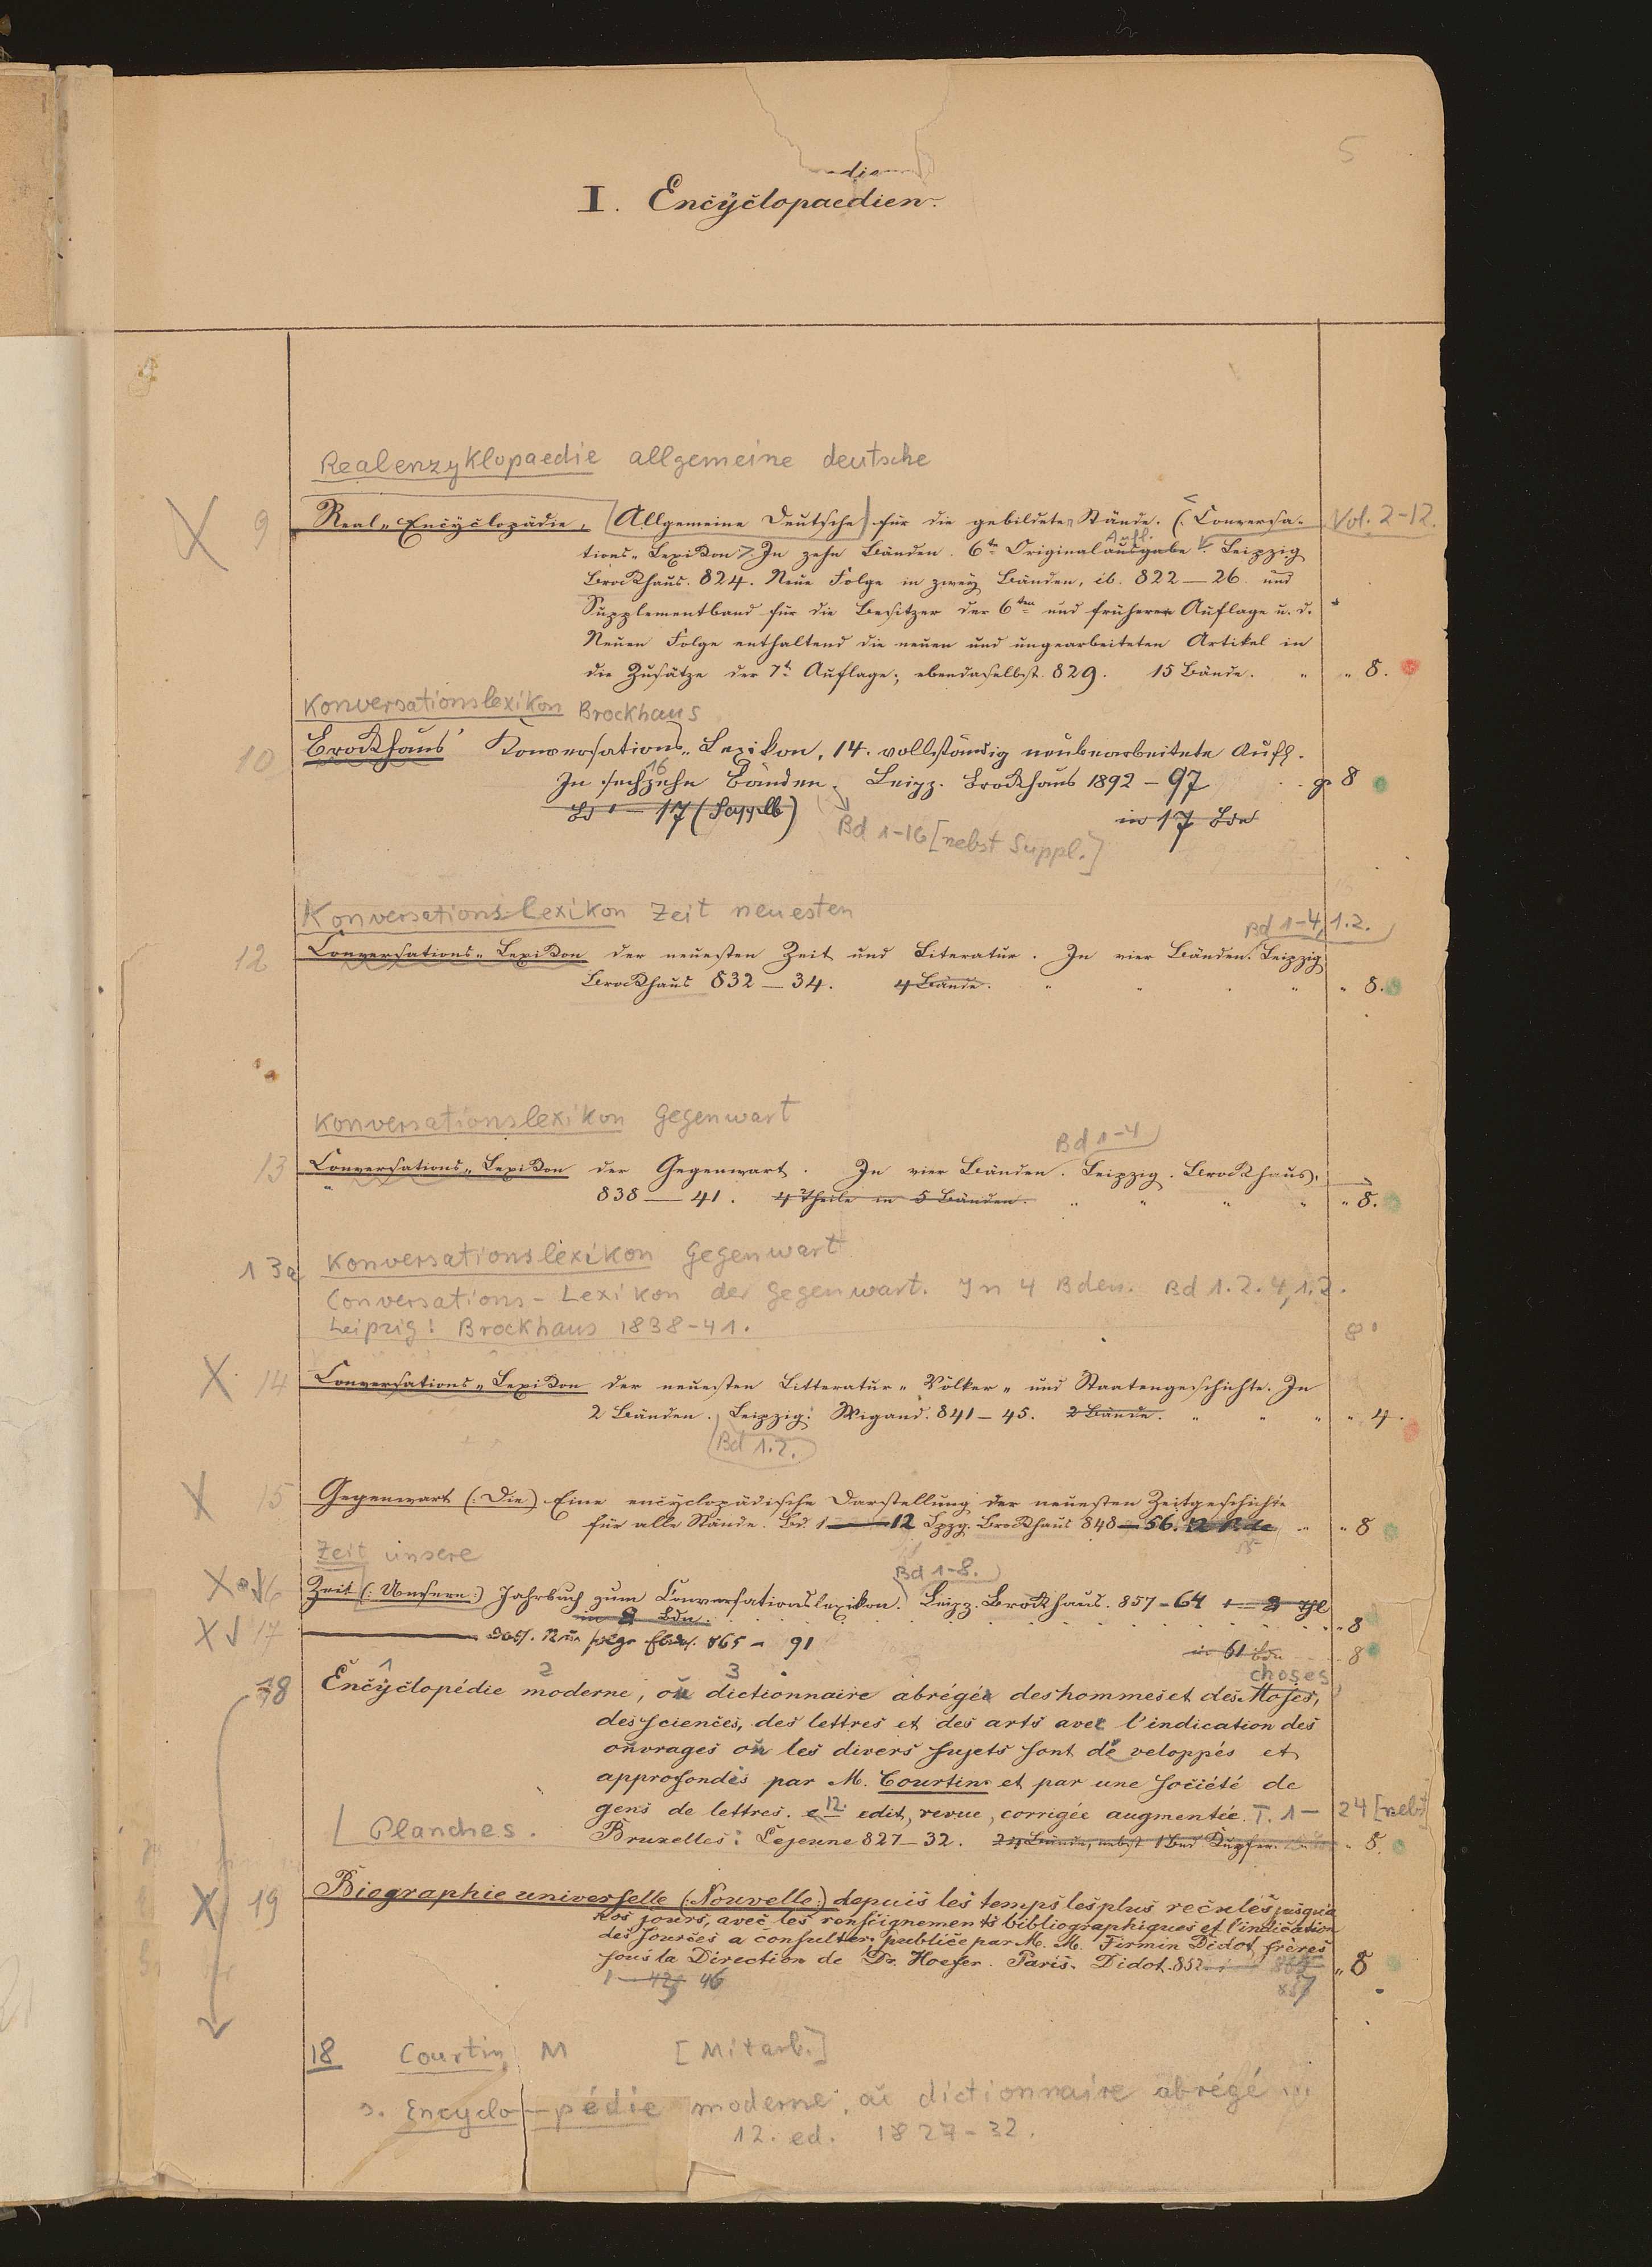 5
I. Encÿclopaedien.
Realenzyklopaedie allgemeine deutsche
9 Real-Encÿclopädie, (Allgemeine Deutsche) für die gebildeten Stände. (: Conversa- Vol. 2-12.
tions-Lexikon:) In zehn Bänden. 6te Originalausgabe Aufl. Leipzig
Brockhaus. 824. Neue Folge in zweÿ Bänden, ib. 822—26 und
Supplementband für die Besitzer der 6ten und früheren Auflage u. d.
Neuen Folge enthaltend die neuen und umgearbeiteten Artikel in
die Zusätze der 7t Auflage; ebendaselbst. 829. 15 Bände. " " 8.
Konversationslexikon Brockhaus
10 Brockhaus' Konversations-Lexikon, 14. vollständig neubearbeitete Aufl.
In sechzehn 16 Bänden. Leipz. Brockhaus 1892-97 8
Bd 1-17 (Supplb) in 17 Bdn
Bd 1-16 [nebst Suppl.]
Konversations-Lexikon Zeit neuesten
Bd 1-4, 1.2.
12 Conversations-Lexikon der neuesten Zeit und Literatur. In vier Bänden. Leipzig
Brockhaus 832—34. 4 Bände. " " " " " 8.
Konversationslexikon Gegenwart
Bd 1-4
13 Conversations-Lexikon der Gegenwart. In vier Bänden. Leipzig. Brockhaus.
838—41. 4 Theile in 5 Bänden. " " " " " 8.
13a Konversationslexikon Gegenwart
Conversations-Lexikon der Gegenwart. In 4 Bden. Bd 1.2.4,1.2.
Leipzig: Brockhaus 1838-41. 8°
X 14 Conversations-Lexikon der neuesten Litteratur- Völker- und Staatengeschichte. In
2 Bänden. Leipzig: Wigand. 841-45. 2 Bände. " " " " 4.
Bd 1.2.
X 15 Gegenwart (: Die) Eine encÿclopädische Darstellung der neuesten Zeitgeschichte
für alle Stände. Bd. 1—12 Lpzg. Brockhaus 848—56. 12 Bde " " 8
Zeit unsere
Bd 1-8.
X 16 Zeit (: Unsere:) Jahrbuch zum Conversationslexikon. Leipz. Brockhaus. 857-64 1-8 Thl
in 8 Bdn. " 8
X 17 Dass. Neue Folge Ebda. 865-91 in 61 Bdn 8
choses
18 Encÿclopédie moderne, ou dictionnaire abrégée des hommes et des Moses,
des sciences, des lettres et des arts avec l'indication des
ouvrages où les divers sujets sont développés et
approfondés par M. Courtin et par une société de
gens de lettres. 12. edit, revue, corrigée augmentée. T. 1- 24 [nebst
Planches. Bruxelles: Lejeune 827-32. 24 Bände, nebst 1 Bnd Kupfer. " 8.
X 19 Biographie universelle (: Nouvelle:) depuis les temps les plus reculés jusqu'a
nos jours, avec les renseignements bibliographiques et l'indication
des sources a consulter: publiée par M. M. Firmin Didot frères
sous la Direction de Dr. Hoefer. Paris. Didot. 852 " 8
1-42 46
18 Courtin, M [Mitarb.]
s. Encyclopédie moderne, ou dictionnaire abrégé ...
12. ed. 1827-32.